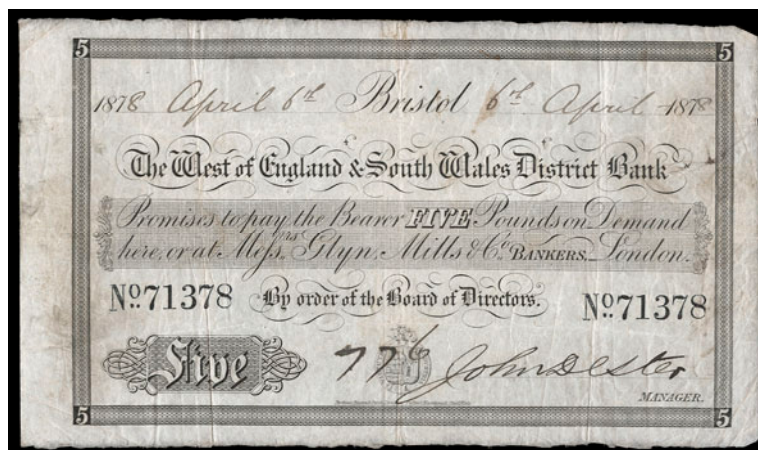 5 5
1878 April 6th Bristol 6th April 1878
The West of England & South Wales District Bank
Promises to pay the Bearer FIVE Pounds on Demand
here, or at Messrs. Glyn, Mills & Co. BANKERS_London.
No. 71378 By order of the Board of Directors. No. 71378
Five 776
MANAGER.
5 5